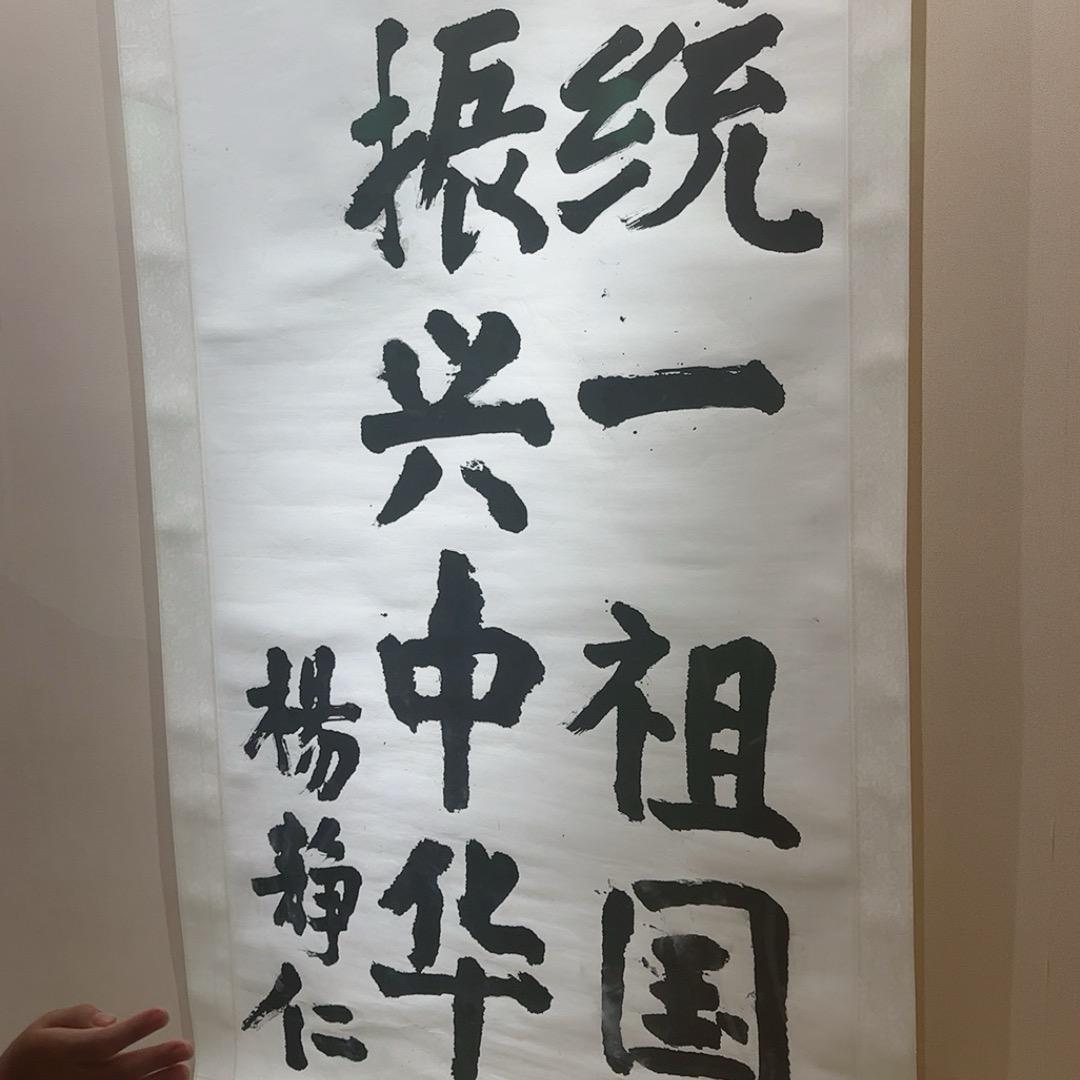 统一祖国
振兴中华
楊静仁